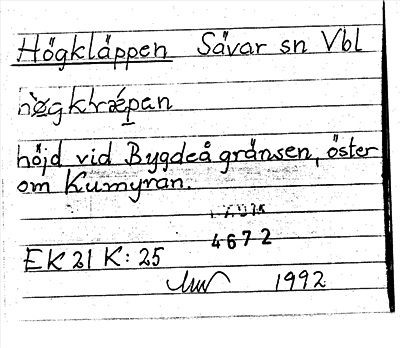 Högkläppen Sävar sn Vbl
höjd vid Bygdeå gränsen, öster
om Kumyran.
4672
EK 21 K: 25
1992